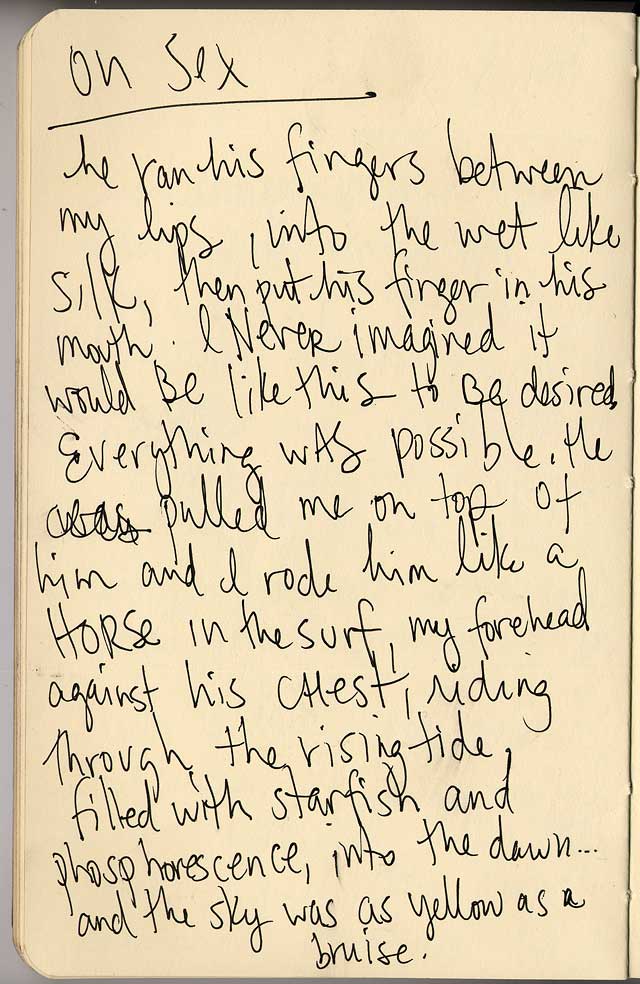 On Sex
he ran his fingers between
my lips, into the wet like
silk, then put his finger in his
mouth. I NEVER imagined it
would BE like this to BE desired.
Everything wAS possible. He
pulled me on top of
him and I rode him like a
HORSE in the surf, my forehead
against his CHEST, riding
through the rising tide,
filled with starfish and
phosphorescence, into the dawn...
and the sky was as yellow as a
bruise.